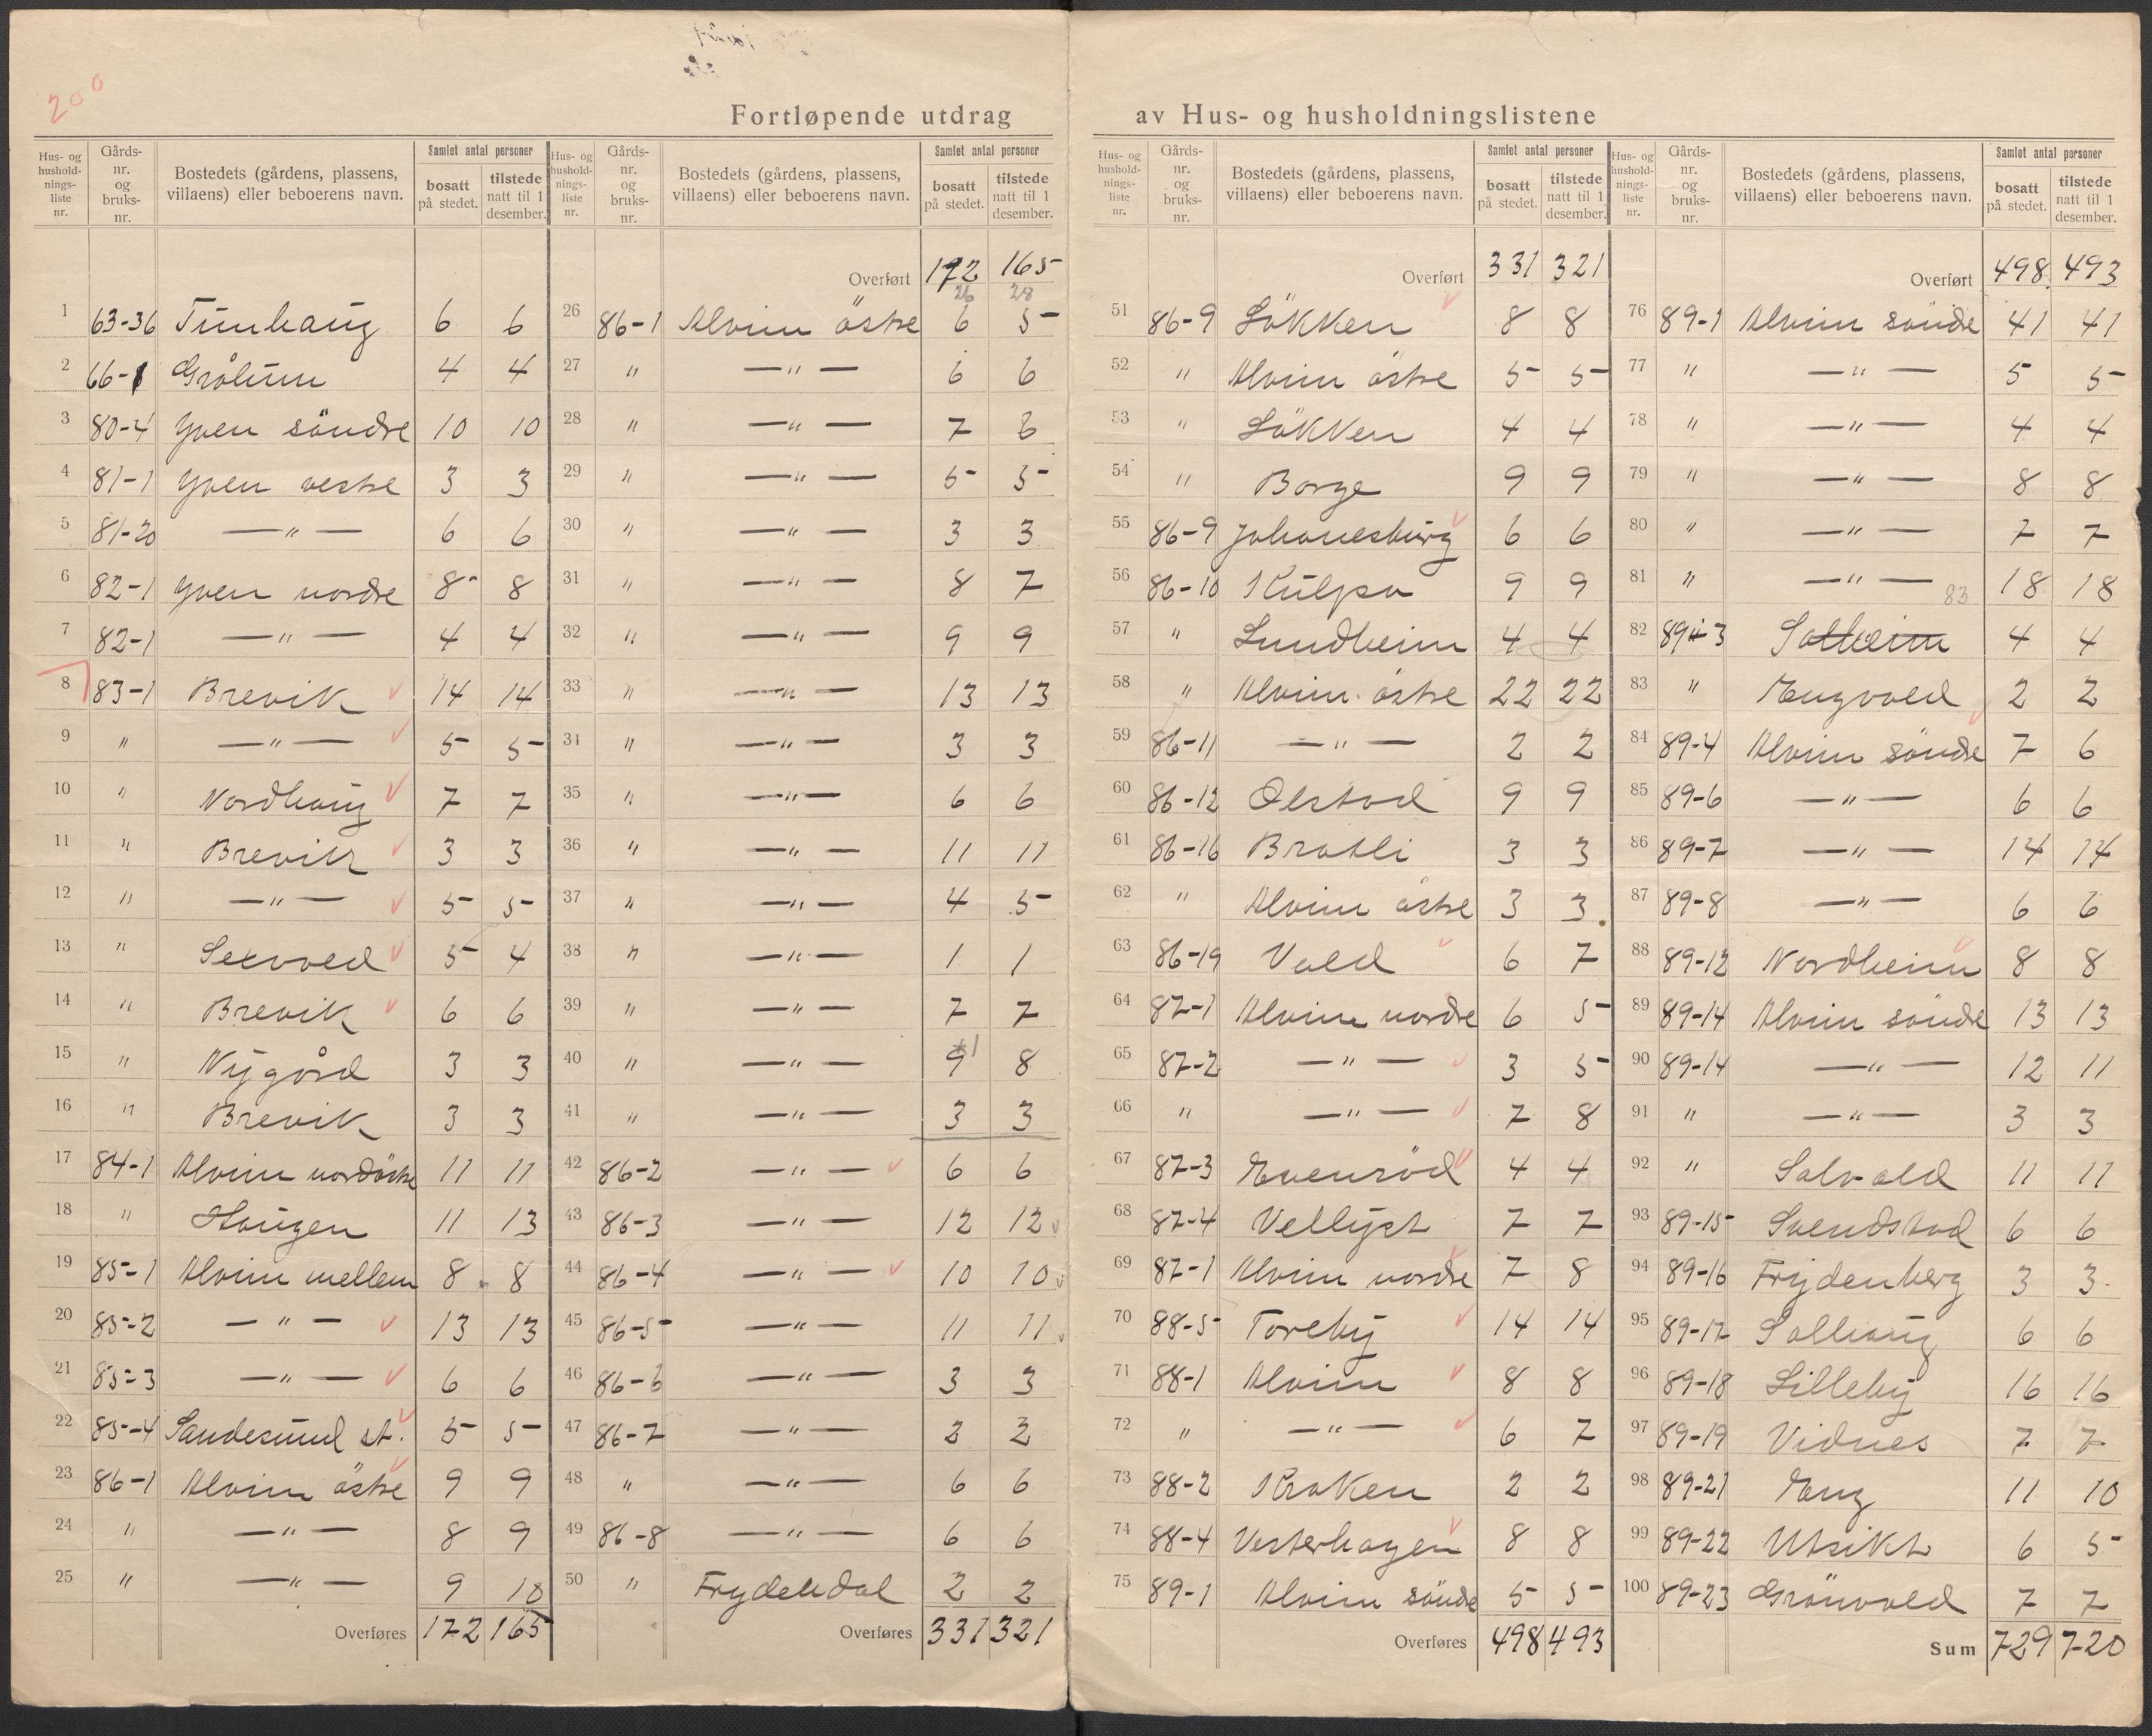 200
Fortløpende utdrag av Hus- og husholdningslistene
Hus- og hushold-nings-liste nr. | Gårds-nr. og bruks-nr. | Bostedets (gårdens, plassens, villaens) eller beboerens navn. | Samlet antal personer | bosatt på stedet. | tilstede natt til 1 desember.
1 63-36 Tunhaug 6 6
2 66-1 Grålum 4 4
3 80-4 Yven söndre 10 10
4 81-1 Yven vestre 3 3
5 81-20 —"— 6 6
6 82-1 Yven nordre 8 8
7 82-1 —"— 4 4
8 83-1 Brevik 14 14
9 " —"— 5 5
10 " Nordhaug 7 7
11 " Brevik 3 3
12 " —"— 5 5
13 " 5 4
14 " Brevik 6 6
15 " Nygård 3 3
16 " Brevik 3 3
17 84-1 Alvim nordöstre 11 11
18 " Haugen 11 13
19 85-1 Alvim mellem 8 8
20 85-2 —"— 13 13
21 85-3 —"— 6 6
22 85-4 Sandesund st. 5 5
23 86-1 Alvim östre 9 9
24 " —"— 8 9
25 " —"— 9 10
Overføres 172 165
Hus- og hushold-nings-liste nr. | Gårds-nr. og bruks-nr. | Bostedets (gårdens, plassens, villaens) eller beboerens navn. | Samlet antal personer | bosatt på stedet. | tilstede natt til 1 desember.
Overført 172 165
26 28
26 86-1 Alvim östre 6 5
27 " —"— 6 6
28 " —"— 7 6
29 " —"— 5 5
30 " —"— 3 3
31 " —"— 8 7
32 " —"— 9 9
33 " —"— 13 13
34 " —"— 3 3
35 " —"— 6 6
36 " —"— 11 11
37 " —"— 4 5
38 " —"— 1 1
39 " —"— 7 7
40 " —"— 9 8
41 " —"— 3 3
42 86-2 —"— 6 6
43 86-3 —"— 12 12
44 86-4 —"— 10 10
45 86-5 —"— 11 11
46 86-6 —"— 3 3
47 86-7 —"— 2 2
48 " —"— 6 6
49 86-8 —"— 6 6
50 " Frydendal 2 2
Overføres 331 321
Hus- og hushold-nings-liste nr. | Gårds-nr. og bruks-nr. | Bostedets (gårdens, plassens, villaens) eller beboerens navn. | Samlet antal personer | bosatt på stedet. | tilstede natt til 1 desember.
Overført 331 321
51 86-9 Lökken 8 8
52 " Alvim östre 5 5
53 " Lökken 4 4
54 " Borge 9 9
55 86-9 Johanesburg 6 6
56 86-10 Kulpa 9 9
57 " Lundheim 4 4
58 " Alvim östre 22 22
59 86-11 —"— 2 2
60 86-12 Ølstad 9 9
61 86-16 Bratli 3 3
62 " Alvim östre 3 3
63 86-19 Vold 6 7
64 87-1 Alvim nordre 6 5
65 87-2 —"— 3 5
66 " —"— 7 8
67 87-3 Evenröd 4 4
68 87-4 Vellyst 7 7
69 87-1 Alvim nordre 7 8
70 88-5 Toreby 14 14
71 88-1 Alvim 8 8
72 " —"— 6 7
73 88-2 Kraken 2 2
74 88-4 Vesterhagen 8 8
75 89-1 Alvim söndre 5 5
Overføres 498 493
Hus- og hushold-nings-liste nr. | Gårds-nr. og bruks-nr. | Bostedets (gårdens, plassens, villaens) eller beboerens navn. | Samlet antal personer | bosatt på stedet. | tilstede natt til 1 desember.
Overført 498 493
76 89-1 Alvim söndre 41 41
77 " —"— 5 5
78 " —"— 4 4
79 " —"— 8 8
80 " —"— 7 7
81 " —"— 83 18 18
82 89-3 Solheim 4 4
83 " Engvold 2 2
84 89-4 Alvim söndre 7 6
85 89-6 —"— 6 6
86 89-7 —"— 14 14
87 89-8 —"— 6 6
88 89-12 Nordheim 8 8
89 89-14 Alvim söndre 13 13
90 89-14 —"— 12 11
91 " —"— 3 3
92 " Solvold 11 11
93 89-15 Svendstad 6 6
94 89-16 Frydenberg 3 3
95 89-17 Solhaug 6 6
96 89-18 Lilleby 16 16
97 89-19 Vidnes 7 7
98 89-21 Eng 11 10
99 89-22 Utsikt 6 5
100 89-23 Grönvold 7 7
Sum 729 720